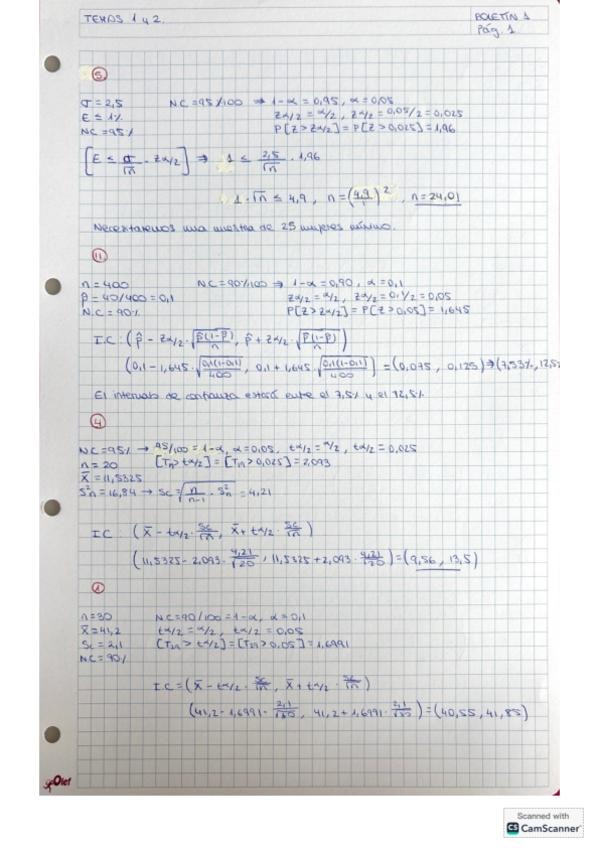 TEMAS 1 y 2.
BOLETÍN 1
Pág. 1
5
σ = 2,5 NC = 95/100 ⇒ 1-α = 0,95, α = 0,05
E ≤ 1% zα/2 = α/2, zα/2 = 0,05/2 = 0,025
NC = 95% P[Z > zα/2] = P[Z > 0,025] = 1,96
[E ≤ σ/√n · zα/2] ⇒ 1 ≤ 2,5/√n · 1,96
1 · √n ≤ 4,9, n = (4,9)², n = 24,01
Necesitaremos una muestra de 25 mujeres mínimo.
11
n = 400 NC = 90%100 ⇒ 1-α = 0,90, α = 0,1
p̂ = 40/400 = 0,1 zα/2 = α/2, zα/2 = 0,1/2 = 0,05
N.C = 90% P[Z > zα/2] = P[Z > 0,05] = 1,645
I.C: (p̂ - zα/2 · √(p̂(1-p̂)/n), p̂ + zα/2 · √(p̂(1-p̂)/n))
(0,1 - 1,645 · √(0,1(1-0,1)/400), 0,1 + 1,645 · √(0,1(1-0,1)/400)) = (0,075, 0,125) ⇒ (7,53%, 12,5
El intervalo de confianza estará entre el 7,5% y el 12,5%
4
NC = 95% → 95/100 = 1-α, α = 0,05, tα/2 = α/2, tα/2 = 0,025
n = 20 [Tn > tα/2] = [Tn > 0,025] = 2,093
x̄ = 11,5325
S²n = 16,84 → Sc = √(n/(n-1) · S²n) = 4,21
IC: (x̄ - tα/2 · Sc/√n, x̄ + tα/2 · Sc/√n)
(11,5325 - 2,093 · 4,21/√20, 11,5325 + 2,093 · 4,21/√20) = (9,56, 13,5)
n = 30 NC = 90/100 = 1-α, α = 0,1
x̄ = 41,2 tα/2 = α/2, tα/2 = 0,05
Sc = 2,1 [T29 > tα/2] = [T29 > 0,05] = 1,6991
NC = 90%
IC = (x̄ - tα/2 · Sc/√n, x̄ + tα/2 · Sc/√n)
(41,2 - 1,6991 · 2,1/√30, 41,2 + 1,6991 · 2,1/√30) = (40,55, 41,85)
Scanned with
CS CamScanner